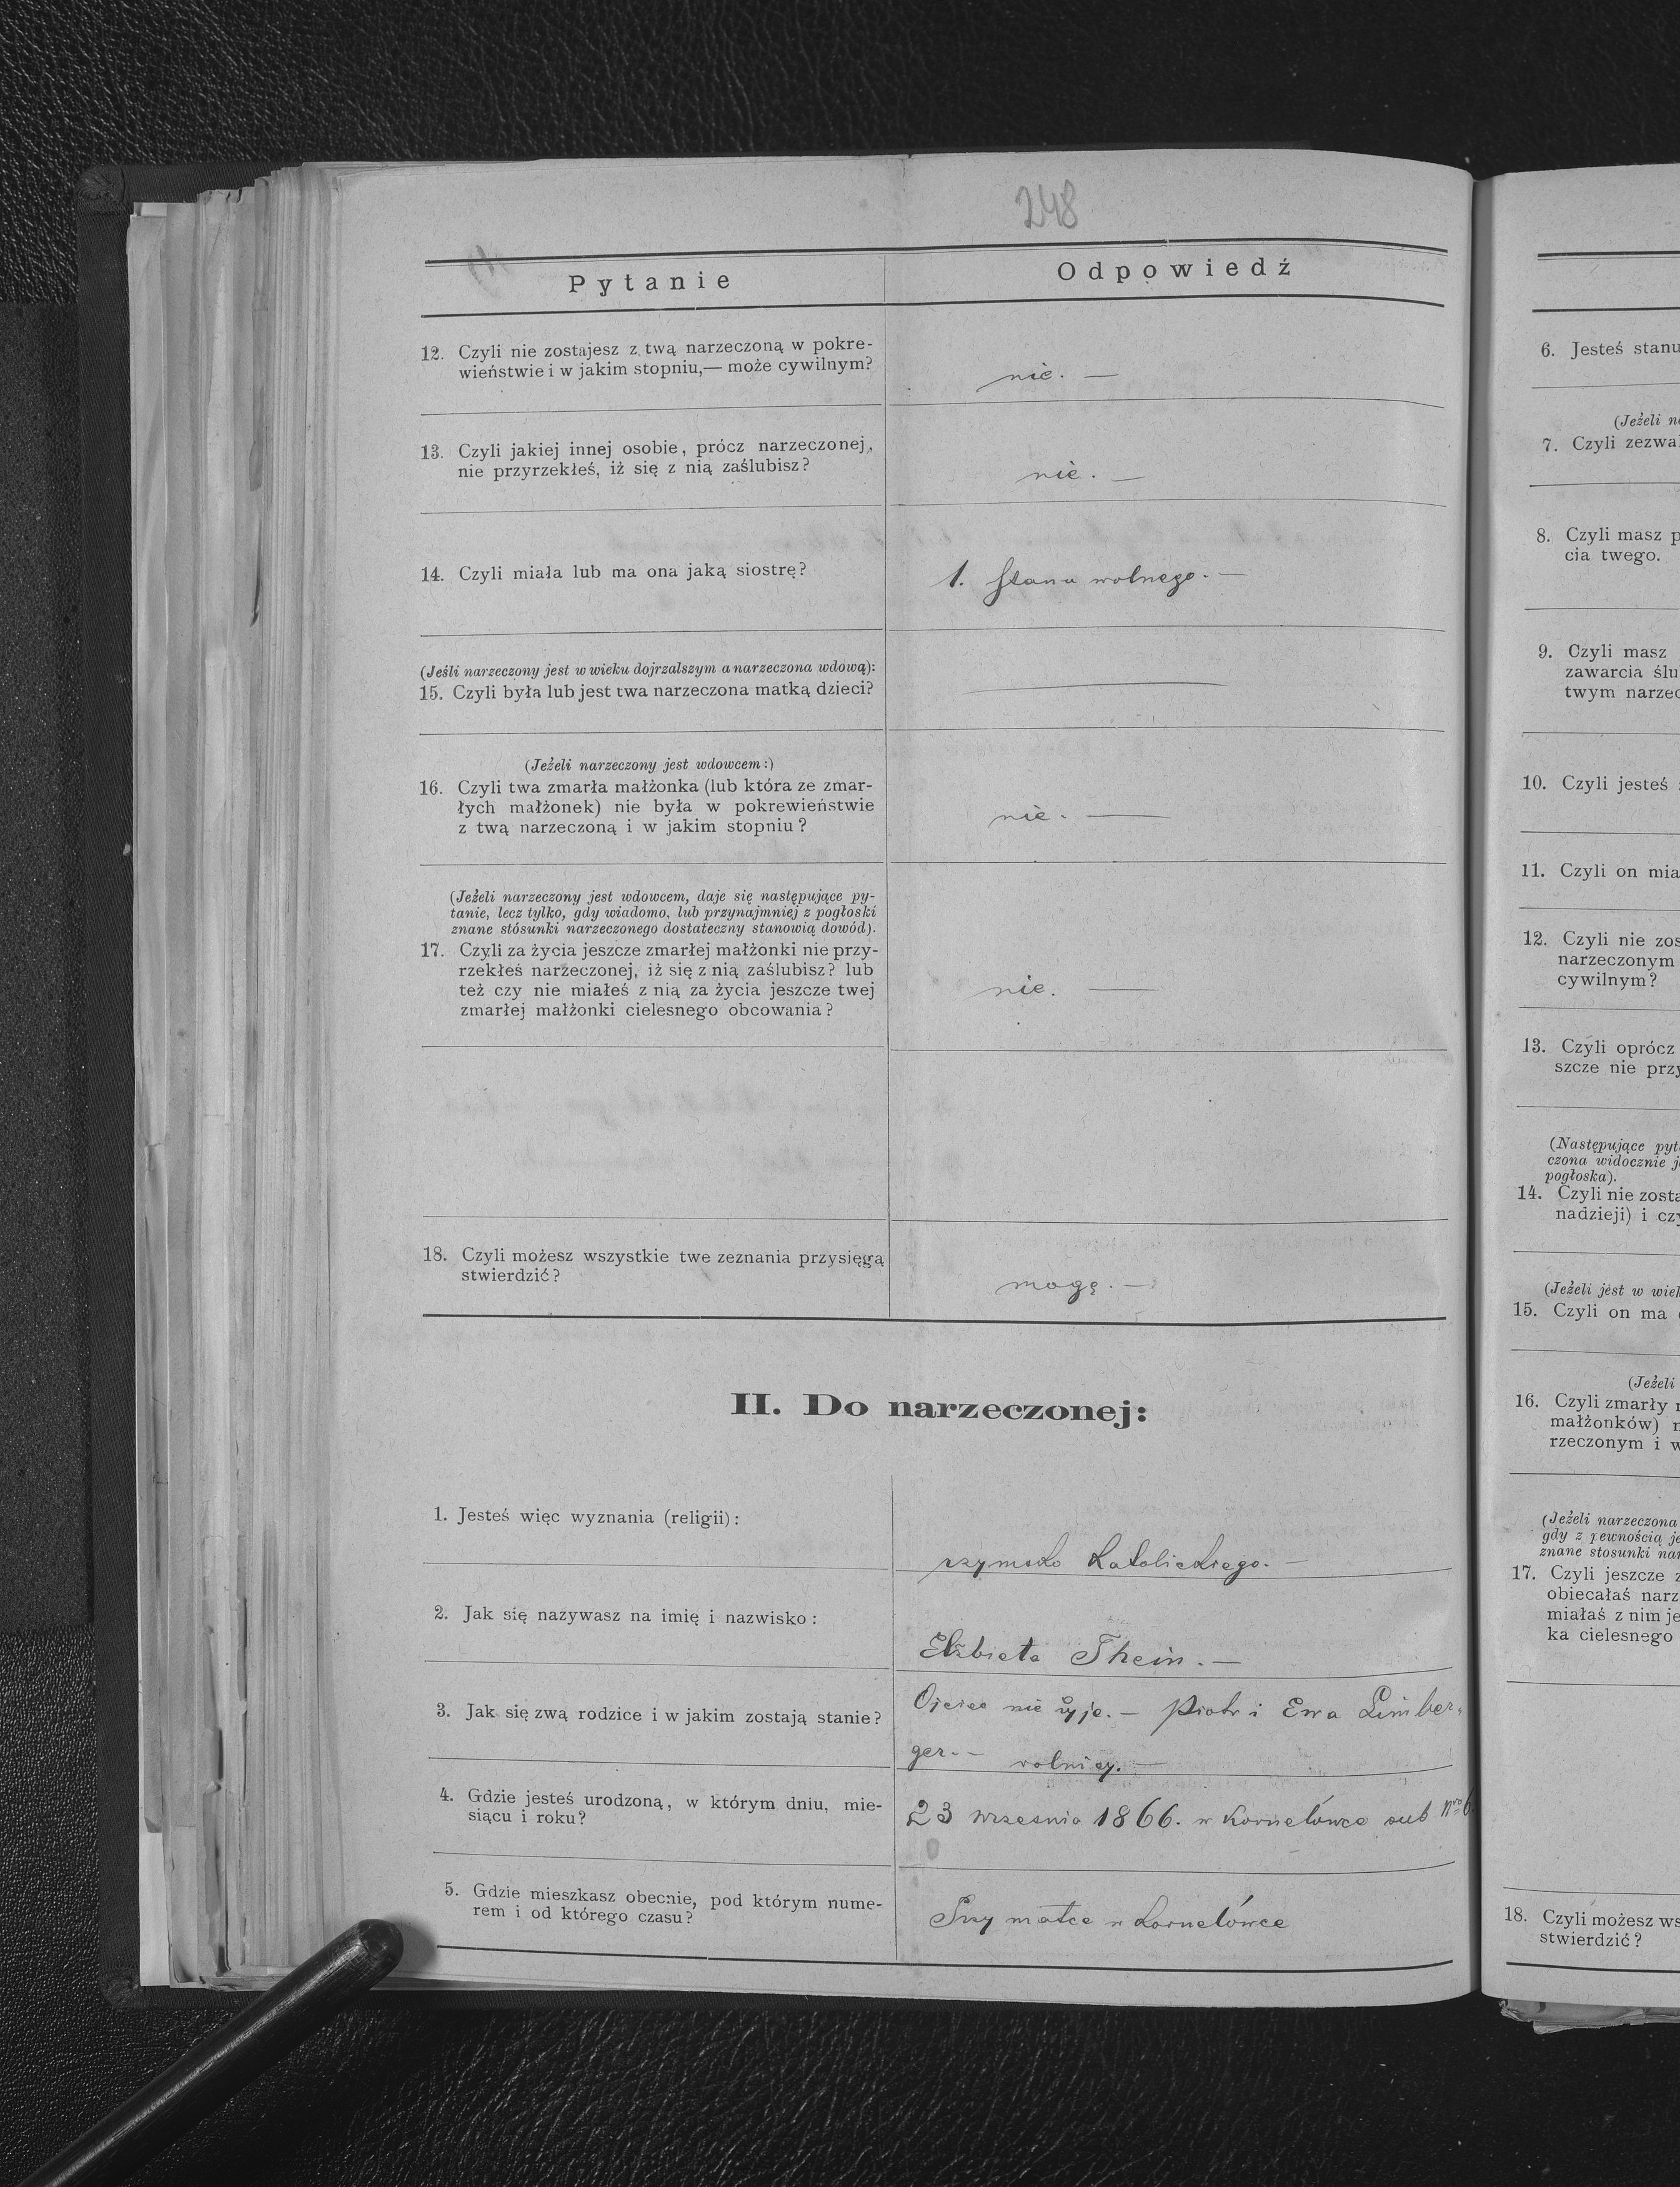 248
Pytanie
Odpowiedź
12. Czyli nie zostajesz z twą narzeczoną w pokre-
wieństwie i w jakim stopniu,— może cywilnym?
nie. —
13. Czyli jakiej innej osobie, prócz narzeczonej,
nie przyrzekłeś, iż się z nią zaślubisz?
nie. —
14. Czyli miała lub ma ona jaką siostrę?
1. stanu wolnego. —
(Jeśli narzeczony jest w wieku dojrzalszym a narzeczona wdową):
15. Czyli była lub jest twa narzeczona matką dzieci?
(Jeżeli narzeczony jest wdowcem:)
16. Czyli twa zmarła małżonka (lub która ze zmar-
łych małżonek) nie była w pokrewieństwie
z twą narzeczoną i w jakim stopniu?
nie. —
(Jeżeli narzeczony jest wdowcem, daje się następujące py-
tanie, lecz tylko, gdy wiadomo, lub przynajmniej z pogłoski
znane stósunki narzeczonego dostateczny stanowią dowód).
17. Czyli za życia jeszcze zmarłej małżonki nie przy-
rzekłeś narzeczonej, iż się z nią zaślubisz? lub
też czy nie miałeś z nią za życia jeszcze twej
zmarłej małżonki cielesnego obcowania?
nie. —
18. Czyli możesz wszystkie twe zeznania przysięgą
stwierdzić?
mogę. —
II. Do narzeczonej:
1. Jesteś więc wyznania (religii):
rzymsko katolickiego. —
2. Jak się nazywasz na imię i nazwisko:
Elżbieta Thein. —
3. Jak się zwą rodzice i w jakim zostają stanie?
Ojciec nie żyje. — Piotr i Ewa Limber-
ger. — rolnicy. —
4. Gdzie jesteś urodzoną, w którym dniu, mie-
siącu i roku?
23 września 1866. w Kornelówce sub Nro 6
5. Gdzie mieszkasz obecnie, pod którym nume-
rem i od którego czasu?
Przy matce w Kornelówce
6. Jesteś stanu
(Jeżeli
7. Czyli
8. Czyli masz
cia twego.
9. Czyli masz
zawarcia
twym
10. Czyli jesteś
11. Czyli on
12. Czyli nie
narzeczonym
cywilnym?
13. Czyli oprócz
szcze nie
(Następujące
czona widocznie
pogłoska).
14. Czyli nie
nadzieji) i
(Jeżeli jest w
15. Czyli on ma
(Jeżeli
16. Czyli zmarły
małżonków)
rzeczonym i
(Jeżeli narzeczona
gdy z pewnością
znane stosunki
17. Czyli jeszcze
obiecałaś
miałaś z nim
ka cielesnego
18. Czyli możesz
stwierdzić?